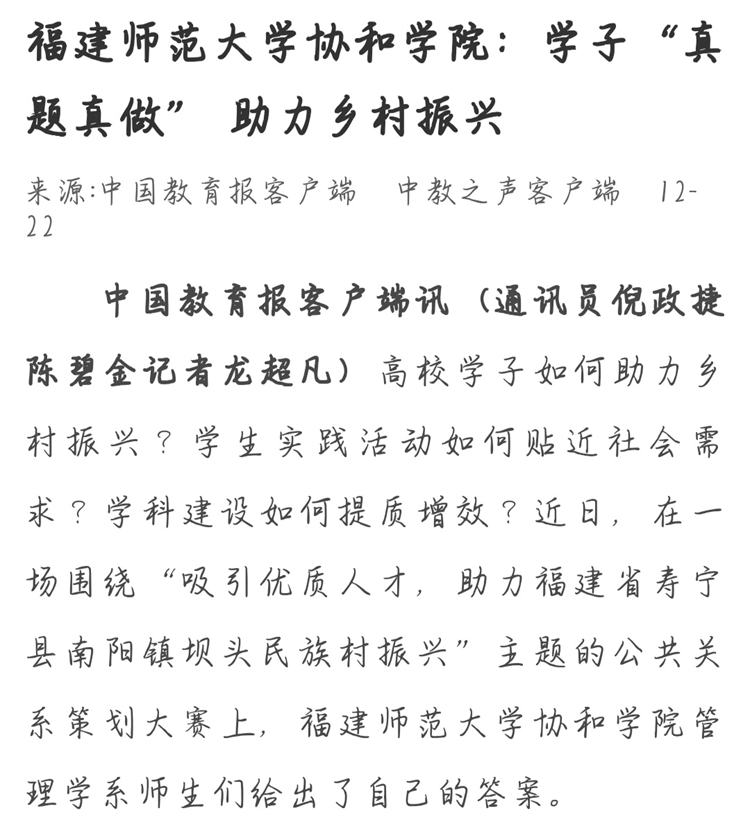 福建师范大学协和学院：学子“真
题真做” 助力乡村振兴
来源:中国教育报客户端 中教之声客户端 12-
22
中国教育报客户端讯（通讯员倪政捷
陈碧金记者龙超凡）高校学子如何助力乡
村振兴？学生实践活动如何贴近社会需
求？学科建设如何提质增效？近日，在一
场围绕“吸引优质人才，助力福建省寿宁
县南阳镇坝头民族村振兴”主题的公共关
系策划大赛上，福建师范大学协和学院管
理学系师生们给出了自己的答案。